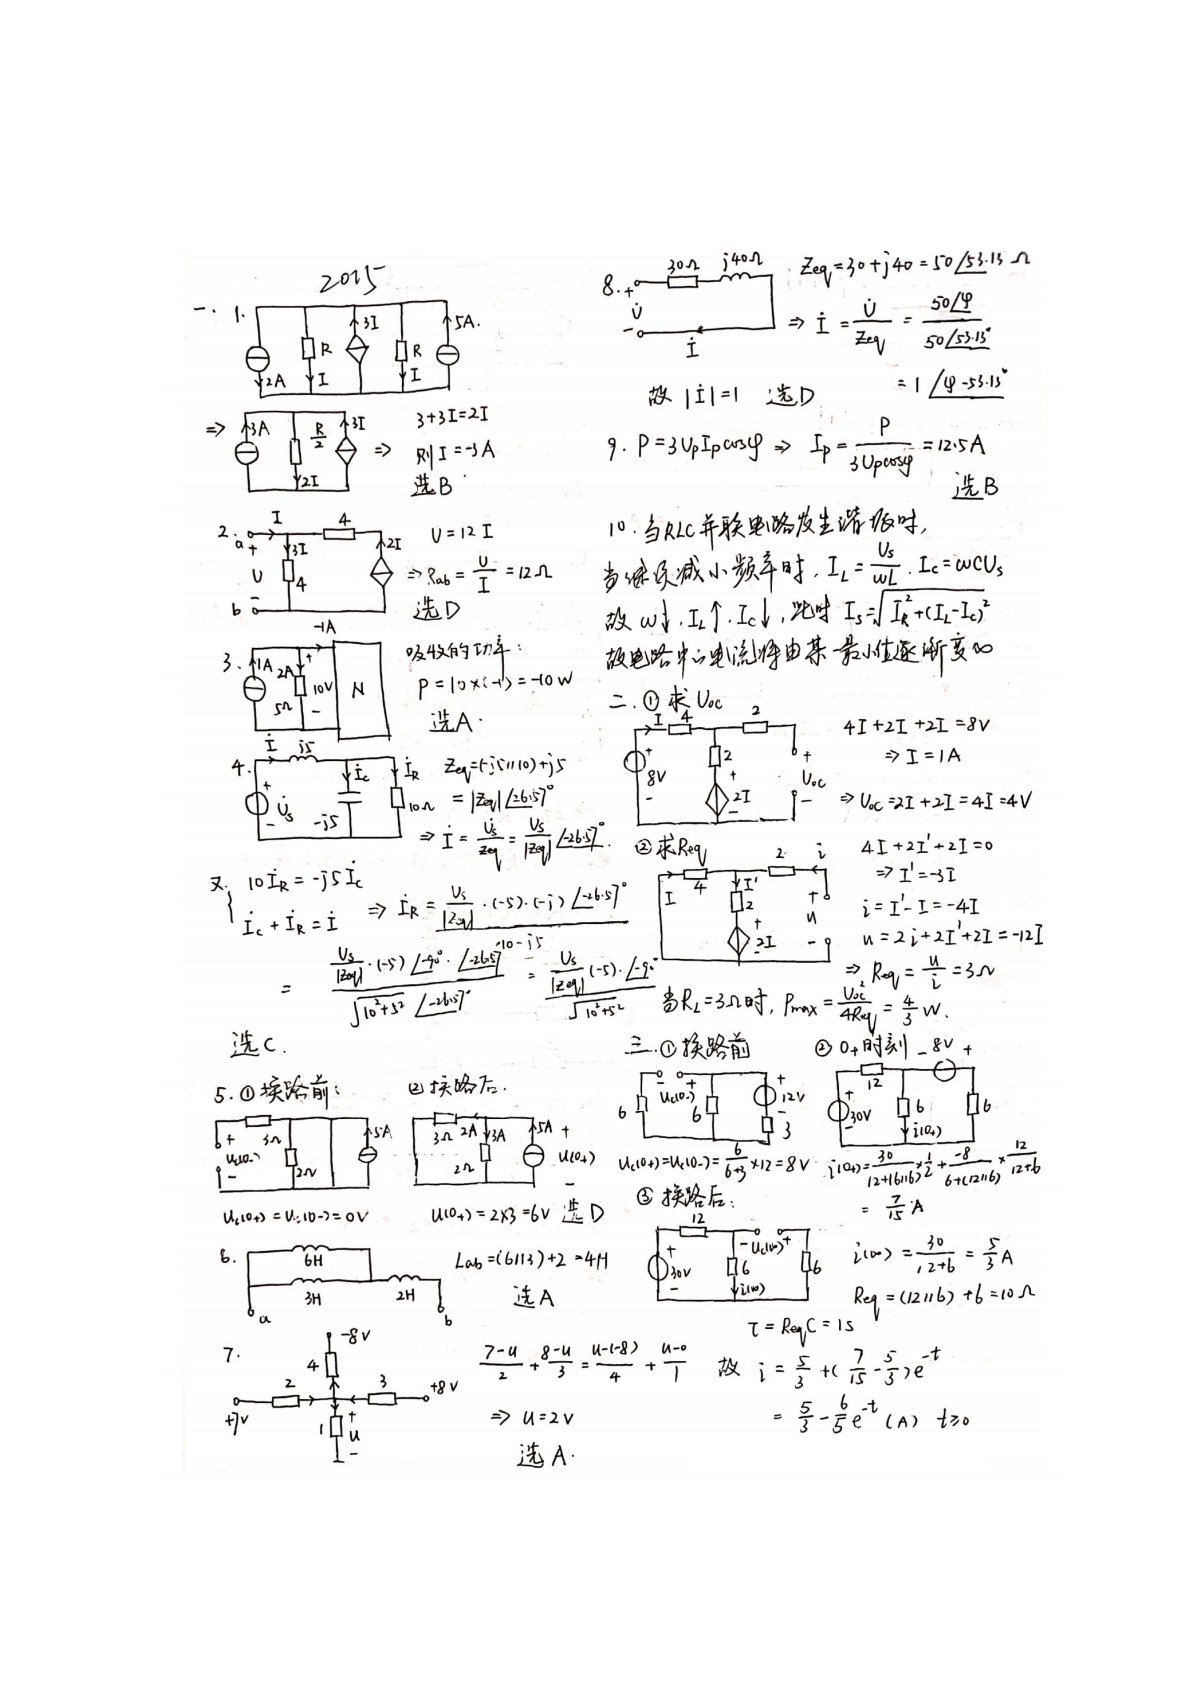 2015
一. 1.
3I
5A.
R
R
2A
I
I
⇒
3A
R/2
3I
2I
⇒
3+3I=2I
则 I=-3A
选B
2.
I
4
a
+
3I
2I
U
4
-
b
U=12I
⇒Rab=U/I=12Ω
选D
3.
-1A
1A
2A
+
10V
5Ω
-
N
吸收的功率:
P=10×(-1)=-10W
选A.
4.
İ
j5
İc
İR
+
U̇s
-
-j5
10Ω
Zeq=(-j5//10)+j5
=|Zeq|∠26.57°
⇒ İ=U̇s/Zeq=Us/|Zeq|∠-26.57°.
又. 10İR=-j5İc
İc+İR=İ
⇒ İR=Us/|Zeq|·(-5)·(-j)∠-26.57°
10-j5
= Us/|Zeq|·(-5)∠-90°·∠-26.57° / √10²+5² ∠-26.57° = Us/|Zeq|(-5)·∠-90° / √10²+5²
选C.
5.①换路前:
+
3Ω
5A
Uc(0-)
2Ω
-
Uc(0+)=Uc(0-)=0V
②换路后.
3Ω
2A
3A
5A
+
2Ω
U(0+)
-
U(0+)=2×3=6V 选D
6.
6H
3H
2H
a
b
Lab=(6//3)+2=4H
选A
7.
-8V
4
2
3
+8V
+7V
1
+
u
-
7-u/2+8-u/3=u-(-8)/4+u-0/1
⇒ u=2V
选A.
8.
+
30Ω
j40Ω
U̇
-
İ
Zeq=30+j40=50∠53.13°Ω
⇒ İ=U̇/Zeq=50∠φ/50∠53.13°
=1∠φ-53.13°
故 |İ|=1 选D
9. P=3UpIpcosφ ⇒ Ip=P/3Upcosφ=12.5A
选B
10. 当RLC并联电路发生谐振时,
当继续减小频率时, IL=Us/ωL. Ic=ωCUs
故 ω↓, IL↑. Ic↓, 此时 Is=√IR²+(IL-Ic)²
故电路中的电流将由某一最小值逐渐变大
二. ①求Uoc
I
4
2
+
8V
-
2
+
2I
-
+
Uoc
-
4I+2I+2I=8V
⇒ I=1A
⇒ Uoc=2I+2I=4I=4V
②求Req
I
4
I'
2
i
2
+
2I
-
+
u
-
4I+2I'+2I=0
⇒ I'=-3I
i=I'-I=-4I
u=2i+2I'+2I=-12I
⇒ Req=u/i=3Ω
当RL=3Ω时, Pmax=Uoc²/4Req=4/3 W.
三.①换路前
6
Uc(0-)
+
6
+
12V
-
3
Uc(0+)=Uc(0-)=6/6+3×12=8V
②0+时刻
-8V+
12
+
30V
-
6
i(0+)
6
i(0+)=30/12+(6//6)×1/2+-8/6+(12//6)×12/12+6
=7/15 A
③换路后:
12
+
30V
-
-Uc(∞)+
6
6
i(∞)
i(∞)=30/12+6=5/3 A
Req=(12//6)+6=10Ω
τ=ReqC=1s
故 i=5/3+(7/15-5/3)e^-t
=5/3-6/5e^-t (A) t≥0